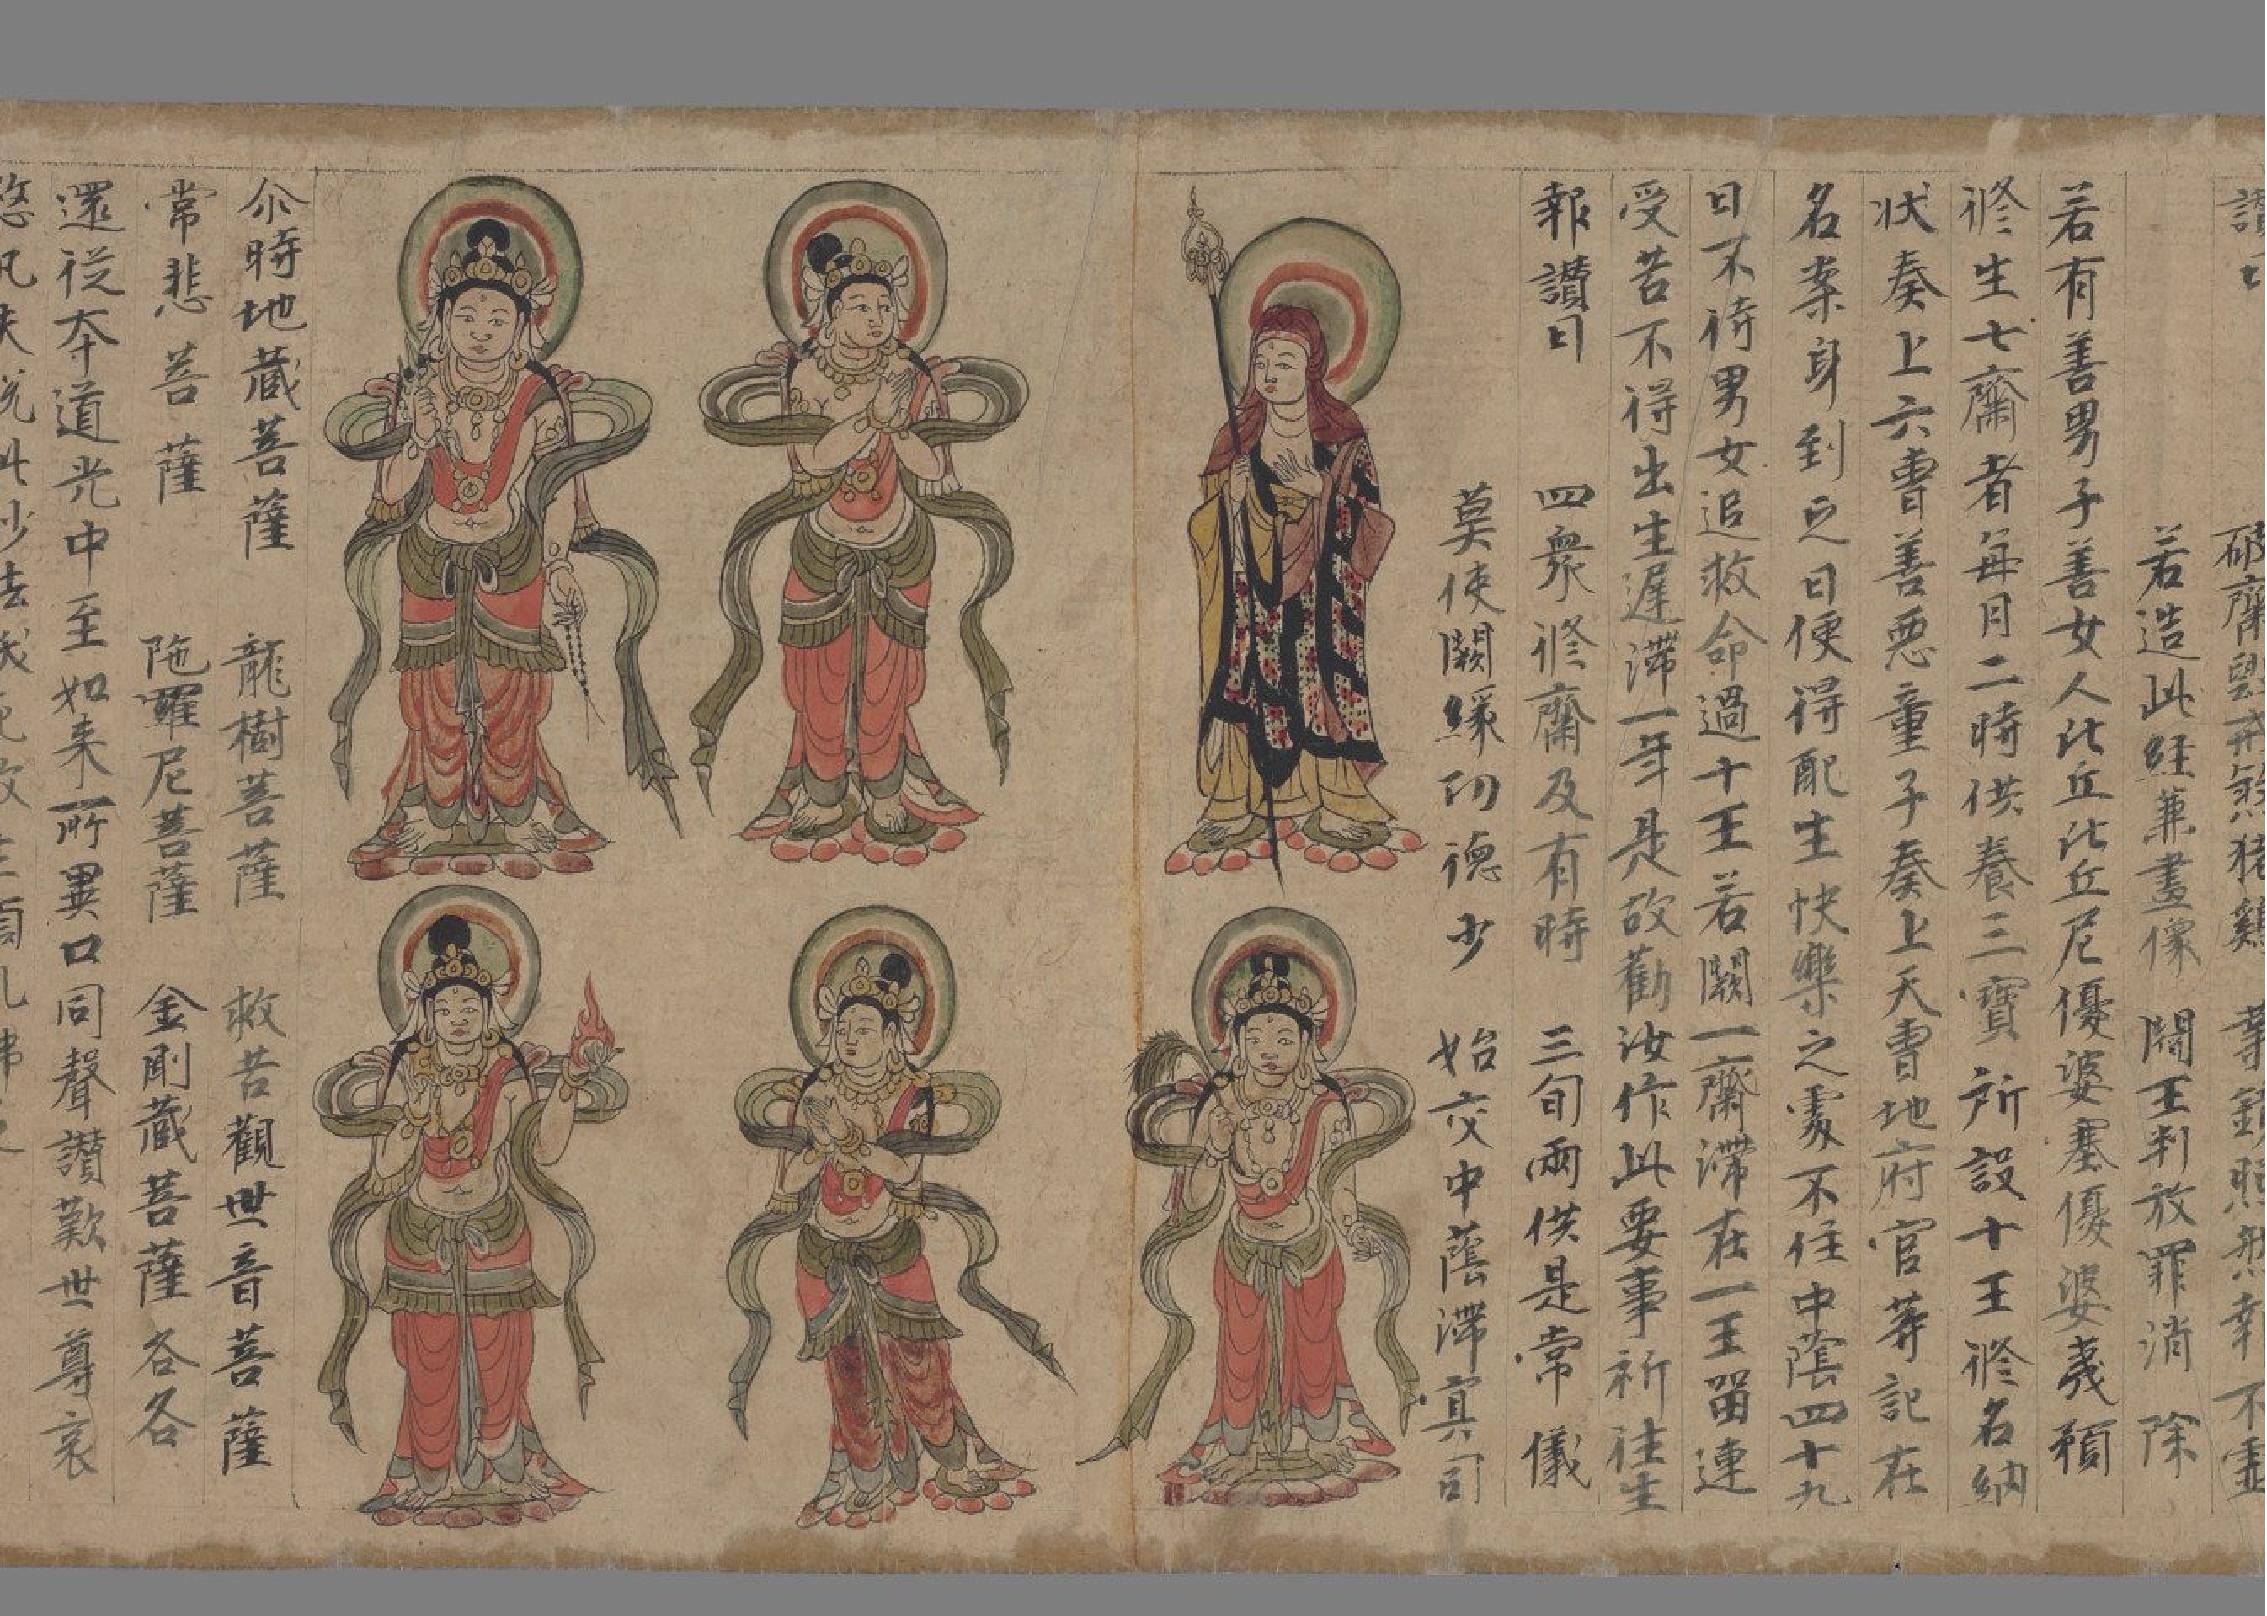 讃曰
破齋毀戒煞猪鷄 業鏡照然幸不虚
若造此經兼畫像 閻王判放罪消除
若有善男子善女人比丘比丘尼優婆塞優婆夷預
修生七齋者每月二時供養三寳所設十王修名納
状奏上六曹善惡童子奏上天曹地府官䓁記在
名案身到之日便得配生快樂之䖏不住中蔭四十九
日不待男女追救命過十王若闕一齋滯在一王畄連
受苦不得出生遲滯一年是故勸汝作此要事祈往生
報讃曰 四衆修齋及有時 三旬兩供是常儀
莫使闕緣功德少 始交中蔭滯㝠司
尒時地藏菩薩 龍樹菩薩 救苦觀世音菩薩
常悲菩薩 陁羅尼菩薩 金剛藏菩薩各各
還從本道光中至如来所異口同聲讃歎世尊哀